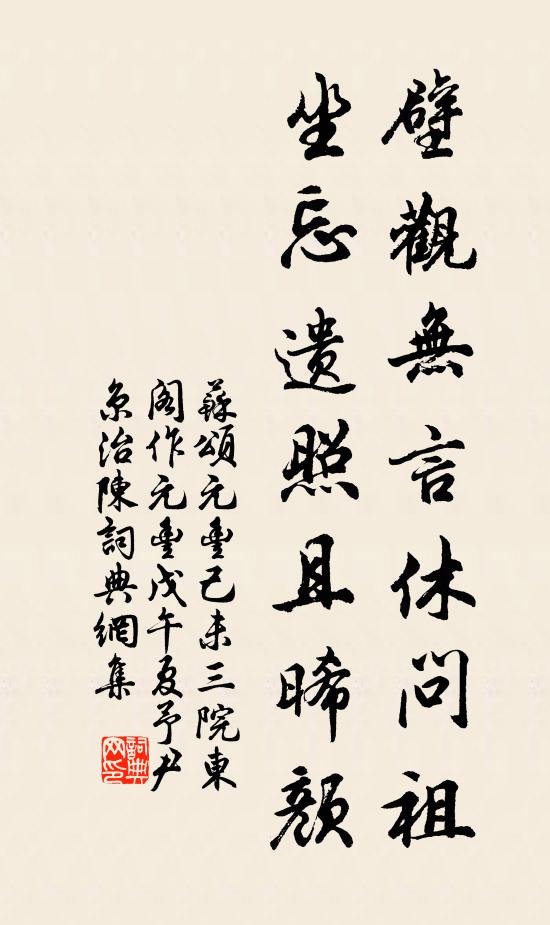 壁觀無言休問祖
坐忘遺照且晞顏
蘇頌元豐己未三院東
閣作元豐戊午夏予尹
京治陳詞典網集
詞典網印